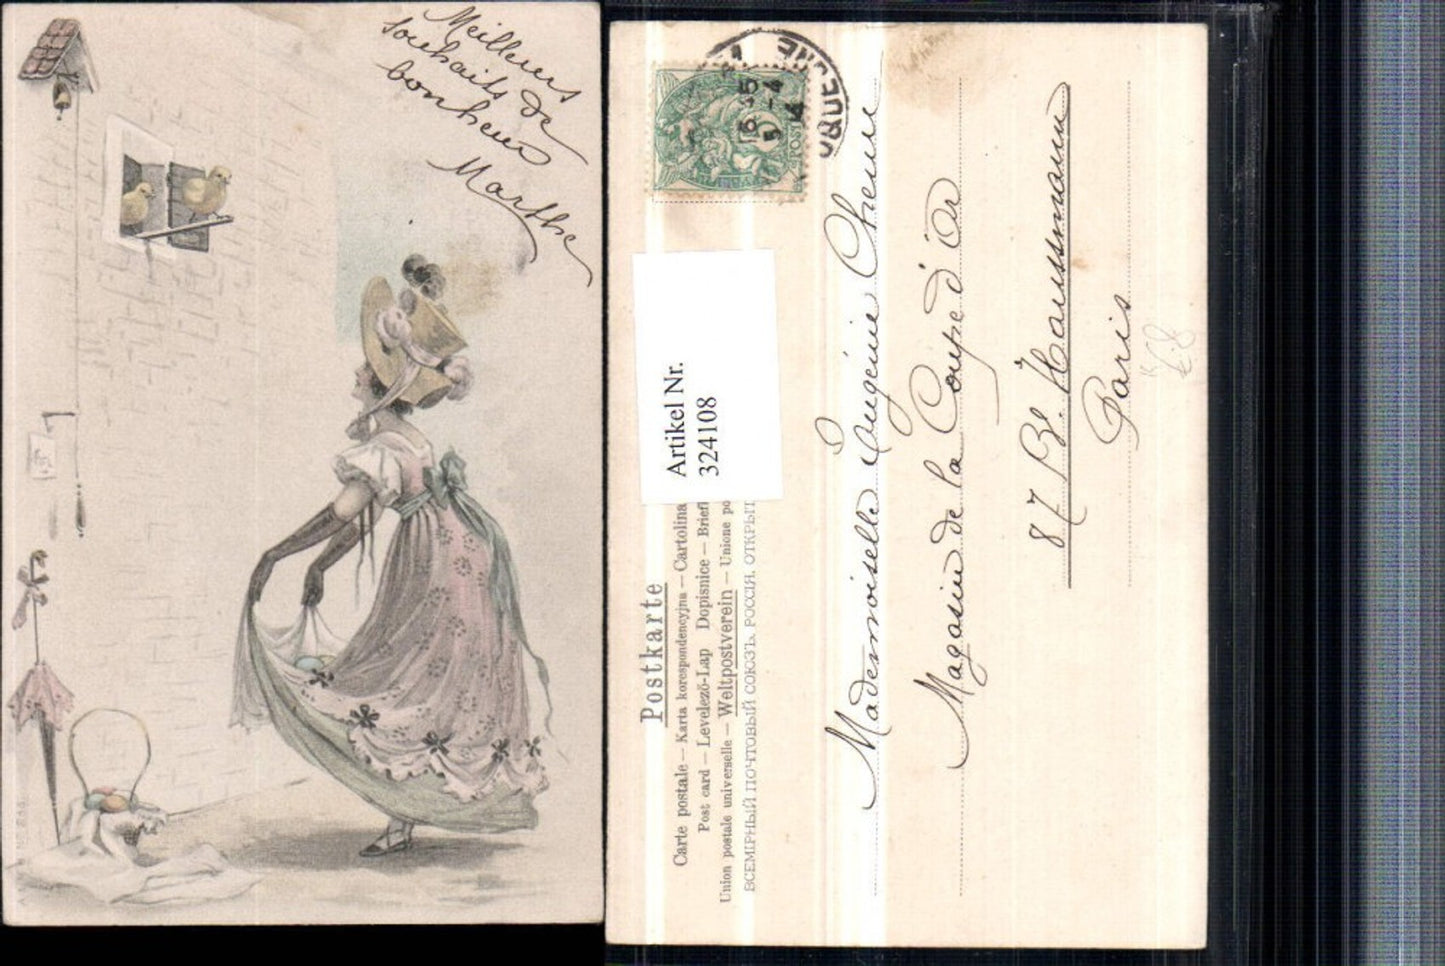 Meilleurs
souhaits de
bonheur
Marthe
Artikel Nr.
324108
Postkarte
Carte postale — Karta korespondencyjna — Cartolina
Post card — Levelező-Lap Dopisnice — Brief
Union postale universelle — Weltpostverein — Unione po
ВСЕМІРНЫЙ ПОЧТОВЫЙ СОЮЗЪ. РОССІЯ. ОТКРЫТ
16 35
5 - 4
Mademoiselle Eugénie Cheure
Magasin de la Coupe d'Or
87 Bd. Haussmann
Paris